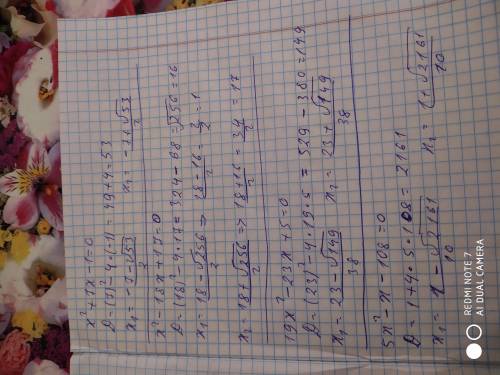 x² + 7x - 1 = 0
D = (7)² - 4·(-1) = 49 + 4 = 53
x₁ = (-7 - √53)/2 x₂ = (-7 + √53)/2
x² - 18x + 17 = 0
D = (18)² - 4·17 = 324 - 68 = √256 = 16
x₁ = (18 - √256)/2 => (18 - 16)/2 = 2/2 = 1
x₂ = (18 + √256)/2 => (18 + 16)/2 = 34/2 = 17
19x² - 23x + 5 = 0
D = (23)² - 4·19·5 = 529 - 380 = 149
x₁ = (23 - √149)/38 x₂ = (23 + √149)/38
5x² - x - 108 = 0
D = 1 + 4·5·108 = 2161
x₁ = (1 - √2161)/10 x₂ = (1 + √2161)/10
REDMI NOTE 7
AI DUAL CAMERA